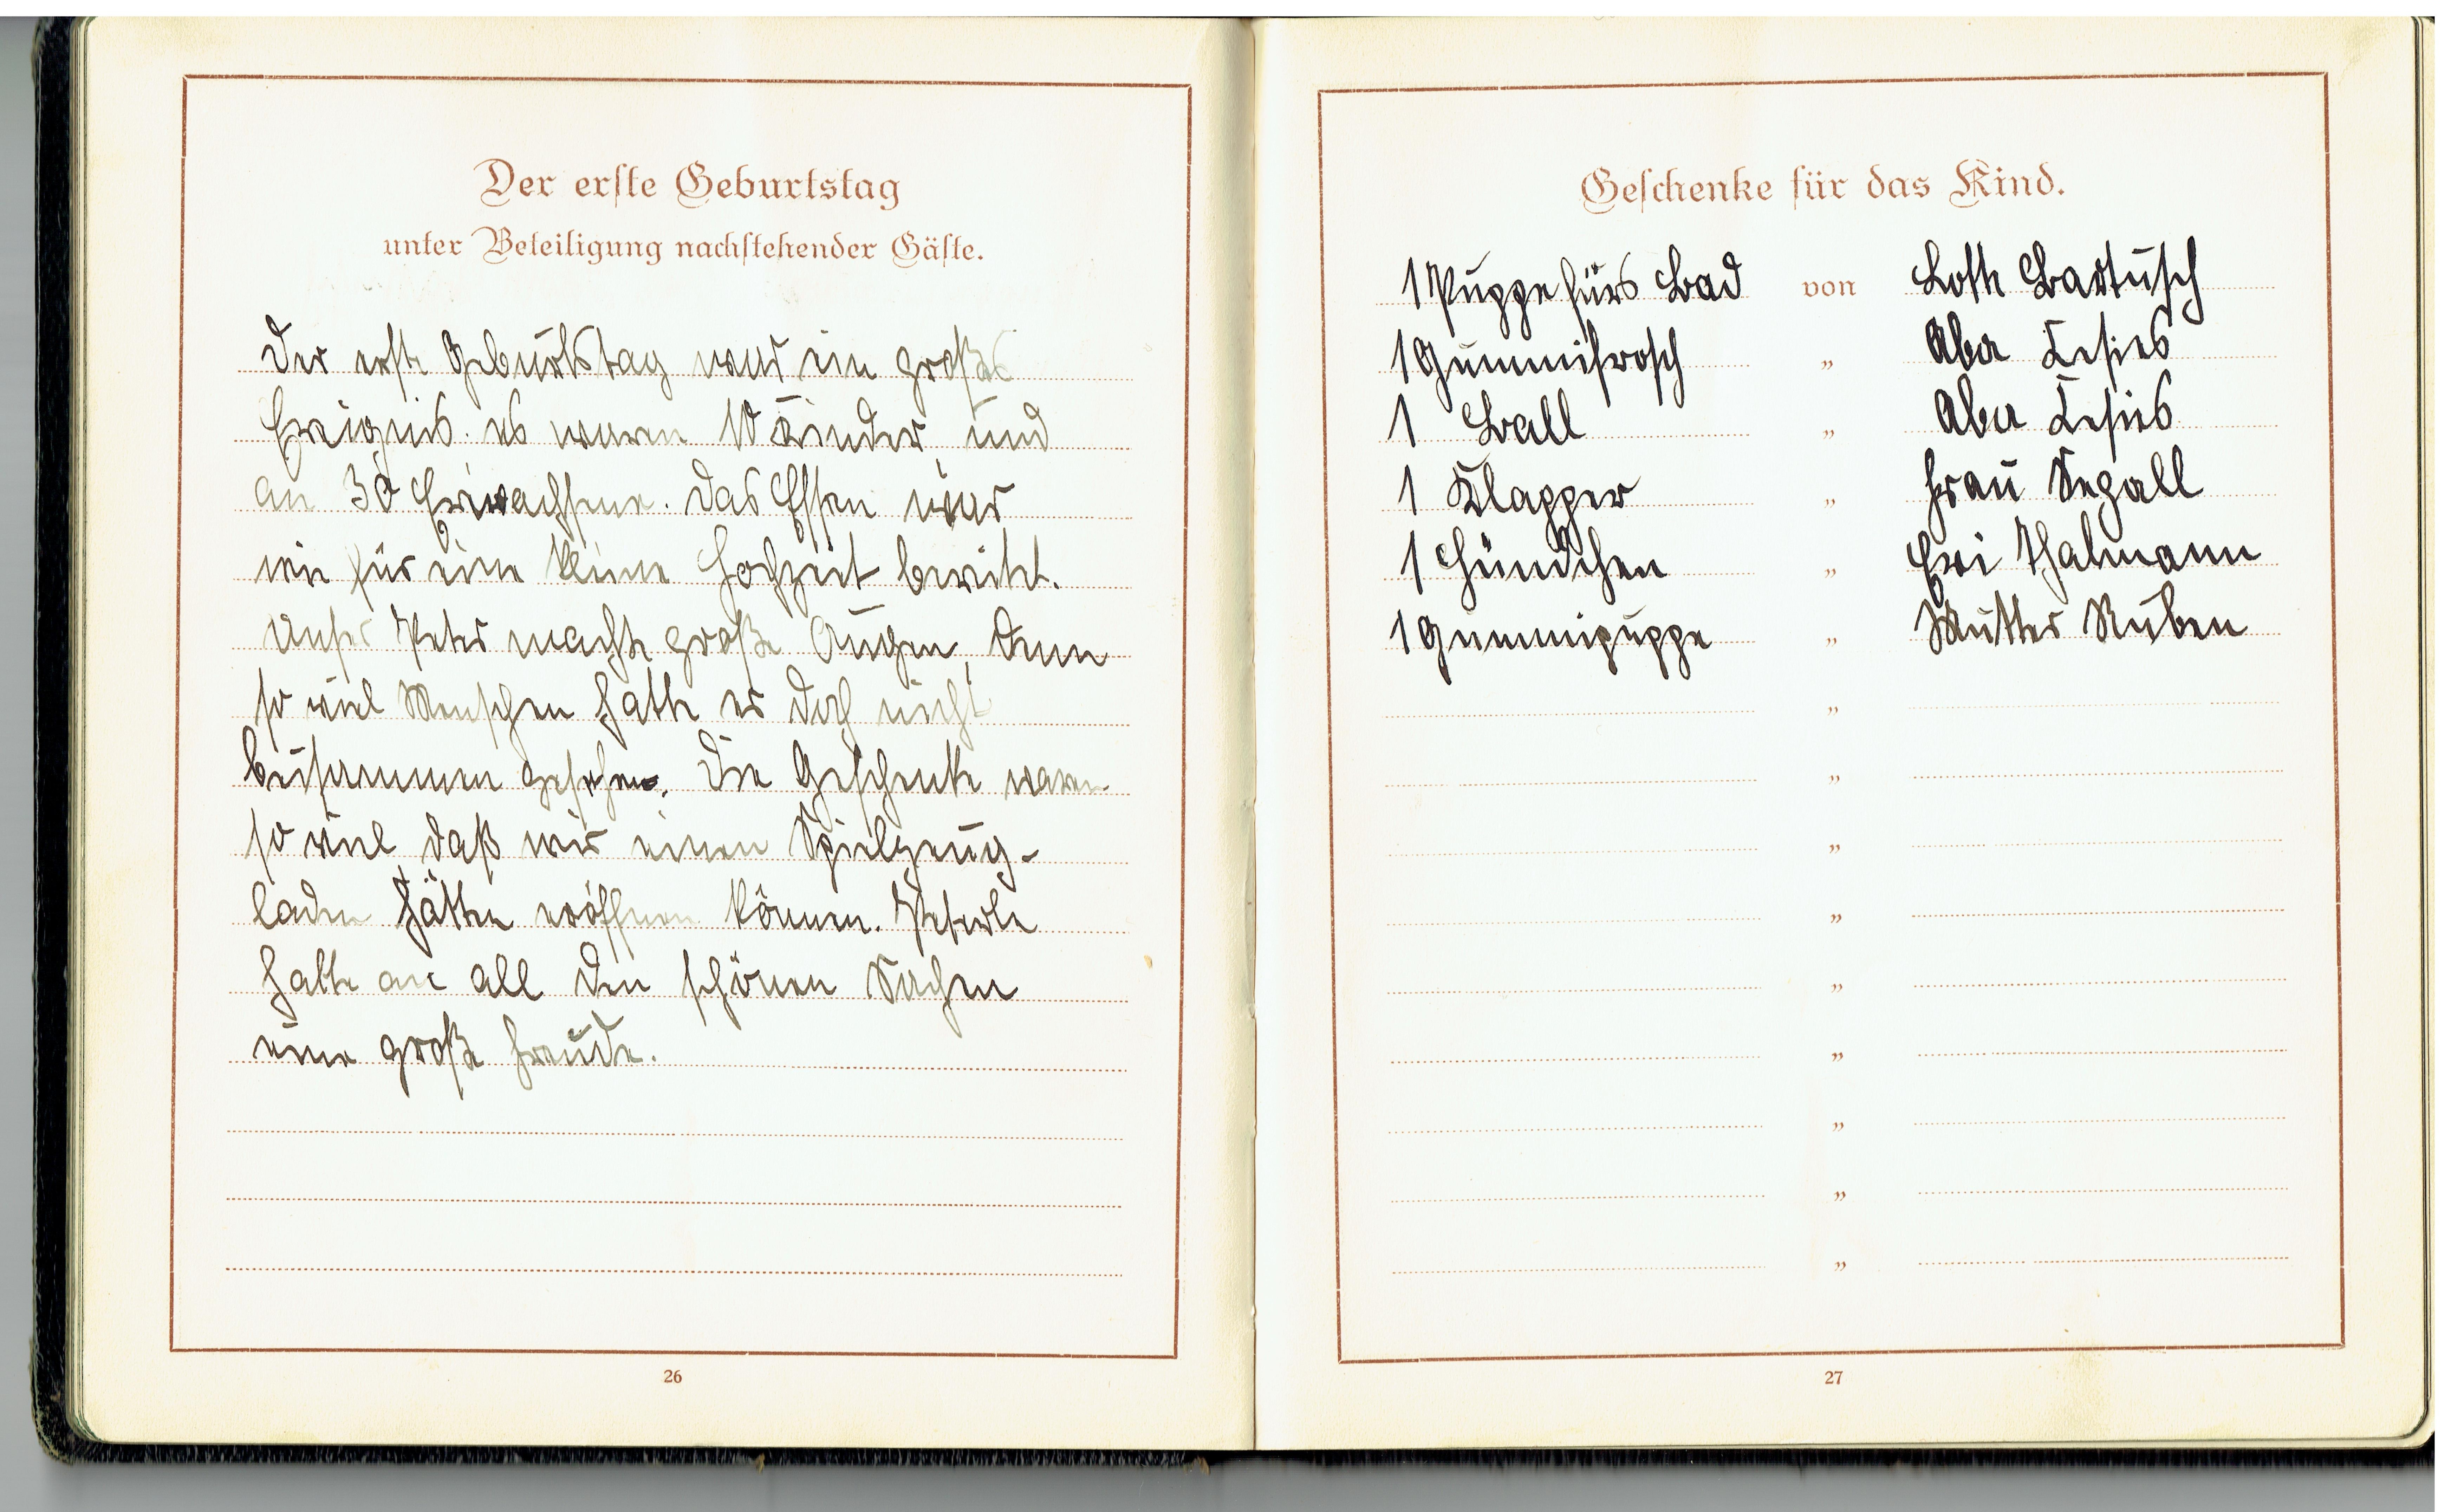 Der erste Geburtstag
unter Beteiligung nachstehender Gäste.
Der erste Geburtstag war ein großes
Ereignis. es waren 10 Kinder und
an 30 Erwachsene. Das Essen war
wie für eine kleine Hochzeit bereitet.
Unser Peter machte große Augen, denn
so viel Menschen hatte er doch nicht
beisammen gesehen. Die Geschenke waren
so viel, daß wir einen Spielzeug-
laden hätten eröffnen können. Peterle
hatte an all den schönen Sachen
eine große Freude.
26
Geschenke für das Kind.
1 Puppe fürs Bad von Lotte Bartusch
1 Gummifrosch " Aba
1 Ball " Aba
1 Klapper " Frau Segall
1 Hündchen " Eri Thalmann
1 Gummipuppe " Mutter Ruben
"
"
"
"
"
"
"
"
"
27